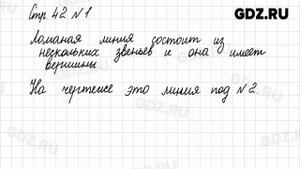 Стр. 42 №1
GDZ.RU
Ломаная линия состоит из
нескольких звеньев и она имеет
вершины
На чертеже это линия под №2.